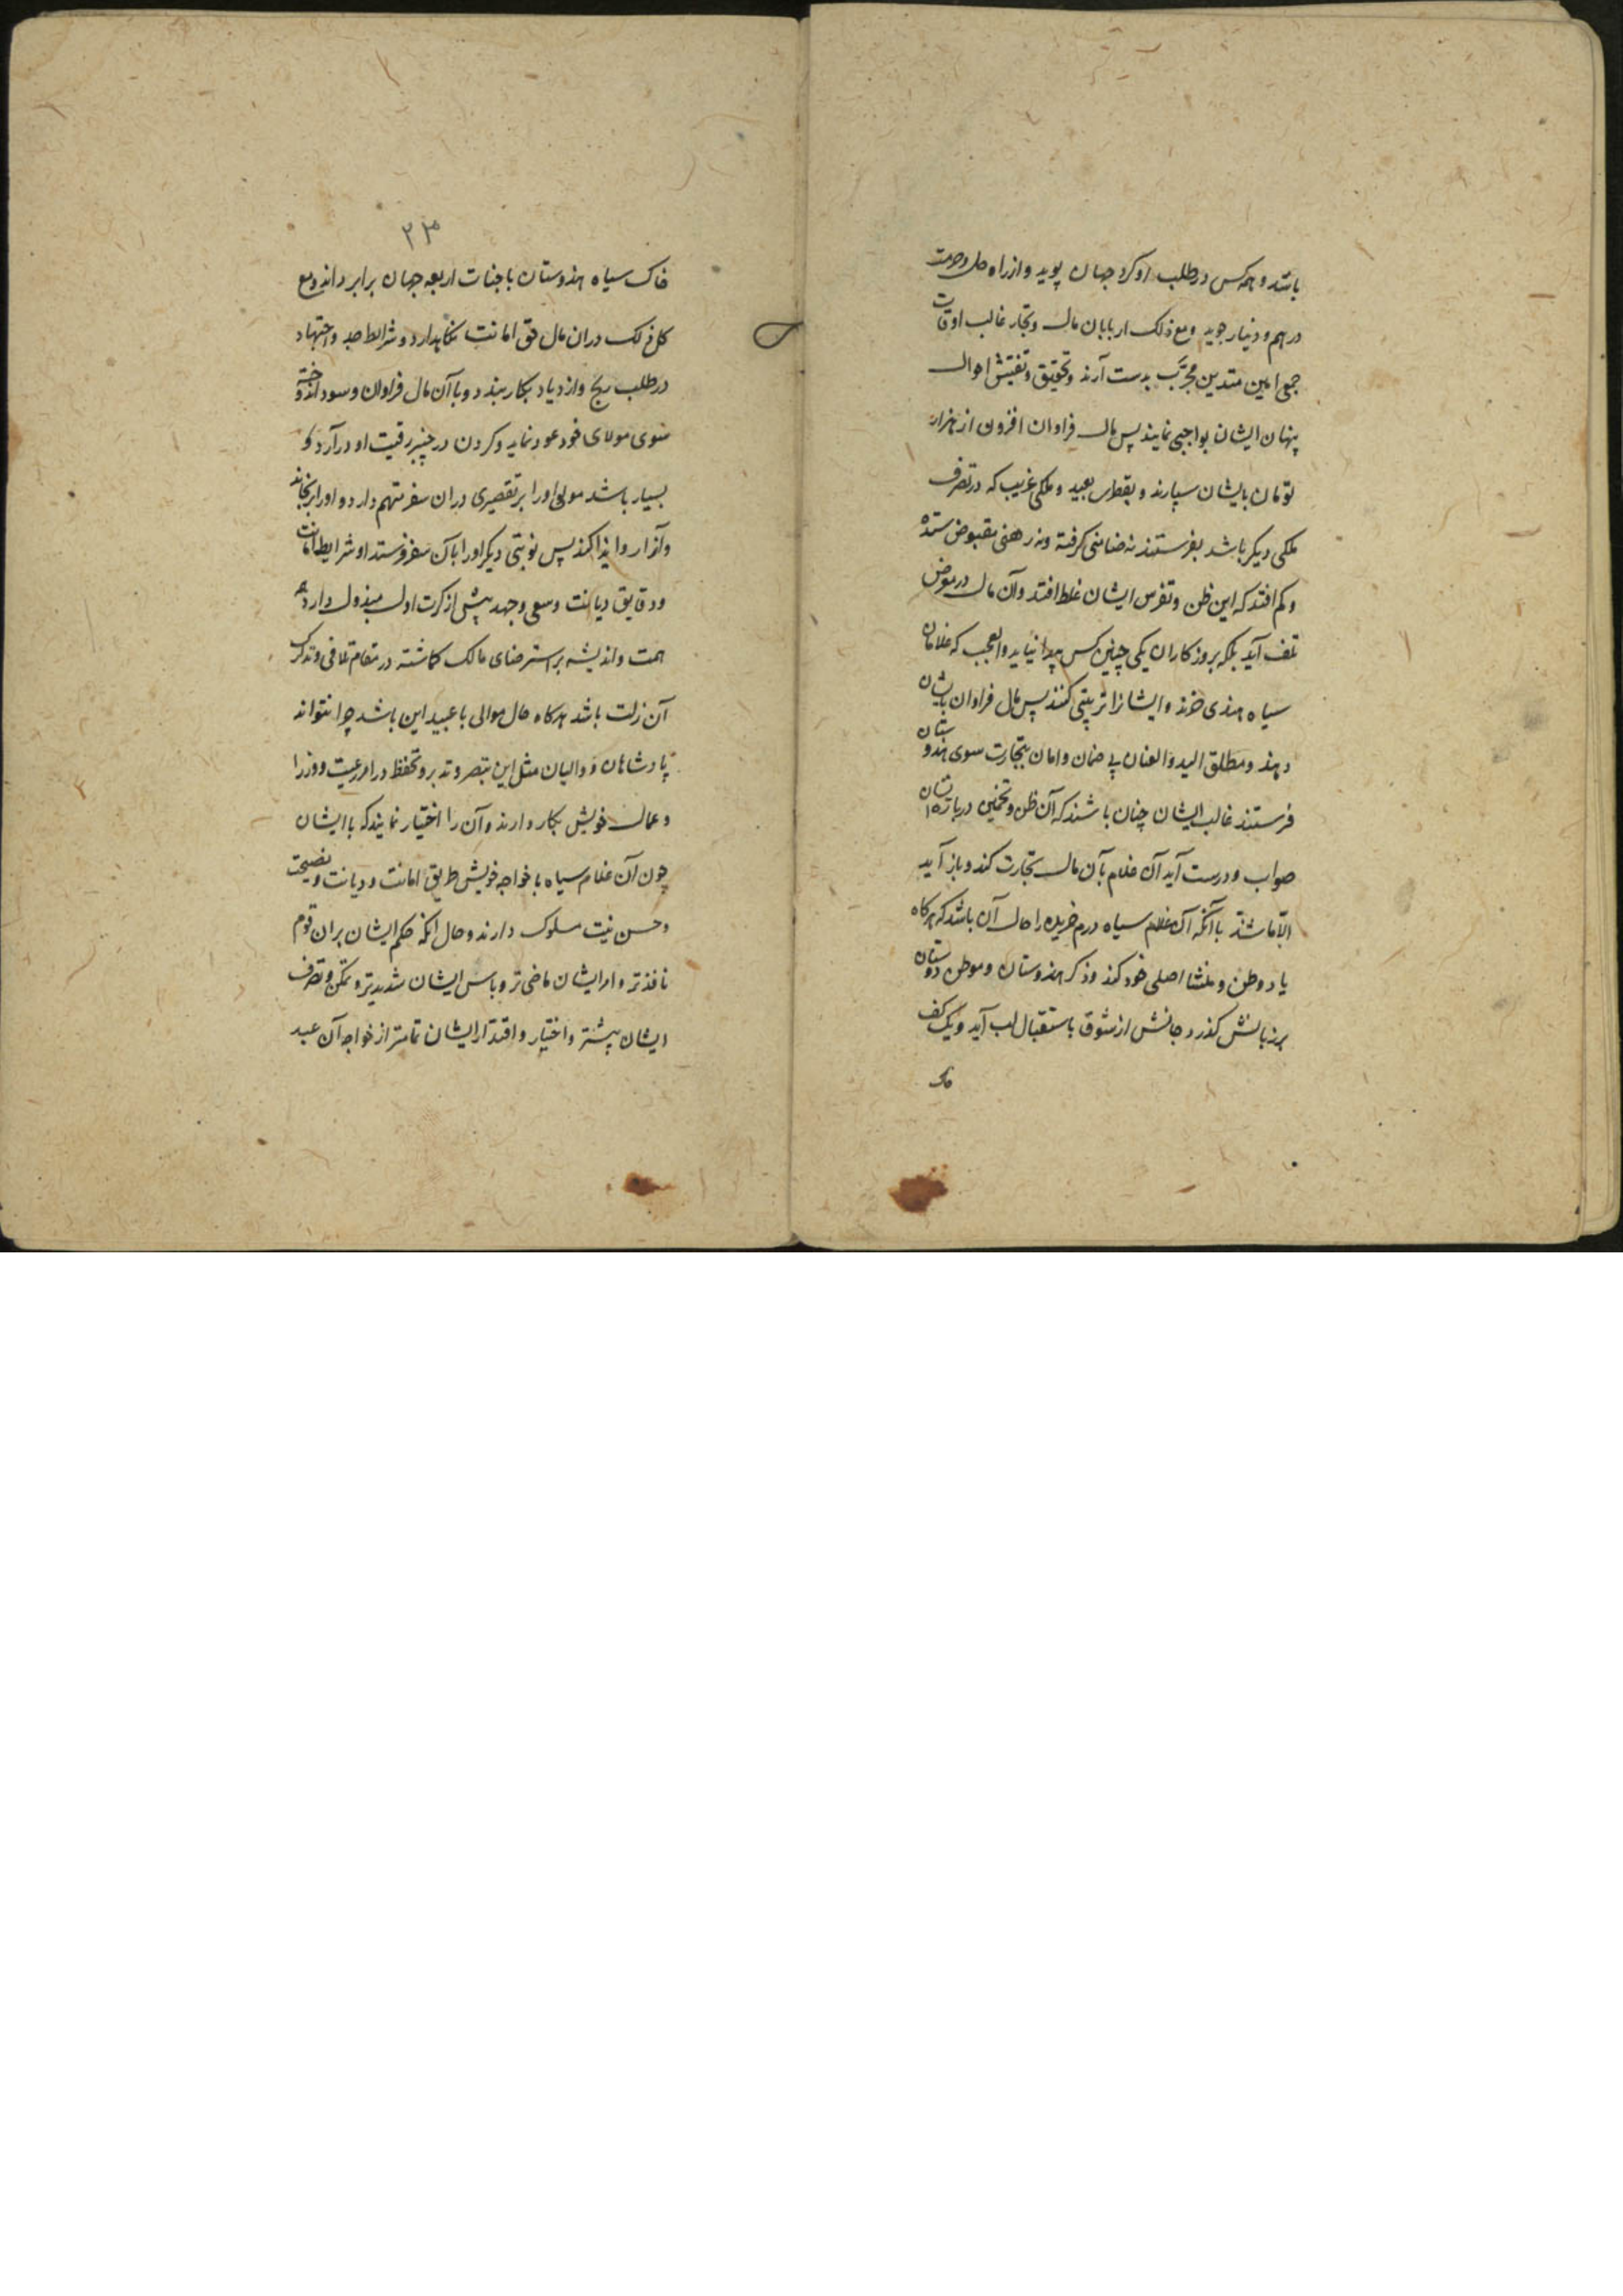 باشد و همه کس در طلب او کرد جهان پوید و از راه حل و حرمت
درهم و دینار جوید و مع ذلک اربابان مال و تجار غالب اوقات
جمعی امین متدین مجرَّب بدست آرند و تحقیق و تفتیش احوال
پنهان ایشان بواجبی نمایند پس مال فراوان افزون از هزار
تومان بایشان سپارند و بقطر بعید و ملکی غریب که در تصرف
ملکی دیگر باشد بفرستند نه ضامنی گرفته و نه رهنی مقبوض ستده
و کم افتد که این ظن و تفرس ایشان غلط افتد و آن مال در معرض
تلف آید بلکه بروزکاران یکی چنین کس پیدا نیاید و العجب که غلامان
سیاه هندی خرند و ایشانرا تربیتی کنند پس مال فراوان بایشان
دهند و مطلق الید و العنان بی ضمان و امان بتجارت سوی هندوستان
فرستند غالب ایشان چنان باشند که آن ظن و تخمین درباره ایشان
صواب و درست آید آن غلام بآن مال تجارت کند و باز آید
الّا ما شذّ با آنکه آن غلام سیاه درم خریده را حال آن باشد که هرکاه
یاد وطن و منشا اصلی خود کند و ذکر هندوستان و موطن دوستان
بر زبانش کذرد جانش از شوق باستقبال لب آید و یک کف
۲۳
خاک سیاه هندوستان با جنات اربعه جهان برابر داند و مع
کل ذلک دران مال حق امانت نکاهدارد و شرائط جد و اجتهاد
در طلب ربح و ازدیاد بکار بندد و با آن مال فراوان و سود اندوخته
سوی مولای خود عود نماید و کردن در چنبر رقیت او درآرد و
بسیار باشد مولی او را بر تقصیری دران سفر متهم دارد و او را برنجاند
و آزار و ایذا کند پس نوبتی دیکر او را بآن سفر فرستد او شرایط امانت
و دقایق دیانت و سعی و جهد پیش از کرت اول مبذول دارد
همت و اندیشه بر استرضای مالک کاشته در مقام تلافی و تدارک
آن زلت باشد هرکاه حال موالی با عبید این باشد چرا نتواند
پادشاهان و والیان مثل این تبصر و تدبر و تحفظ در امر رعیت و وزرا
و عمال خویش بکار دارند و آن را اختیار نمایند که با ایشان
چون آن غلام سیاه با خواجه خویش طریق امانت و دیانت و نصیحت
و حسن نیت سلوک دارند و حال انکه حکم ایشان بران قوم
نافذتر و امر ایشان ماضی تر و باس ایشان شدیدتر و تمکن و تصرف
ایشان پیشتر و اختیار و اقتدار ایشان تمامتر از خواجه آن عبد